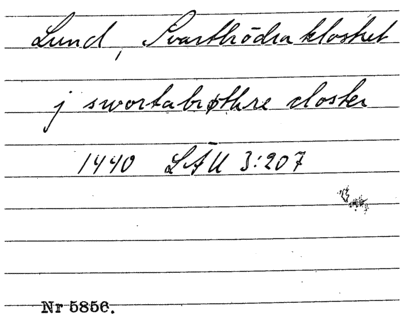 Lund, Svartbrödraklostret
j swortabrøthre closter
1440 LÄU 3:207
Nr 5856.